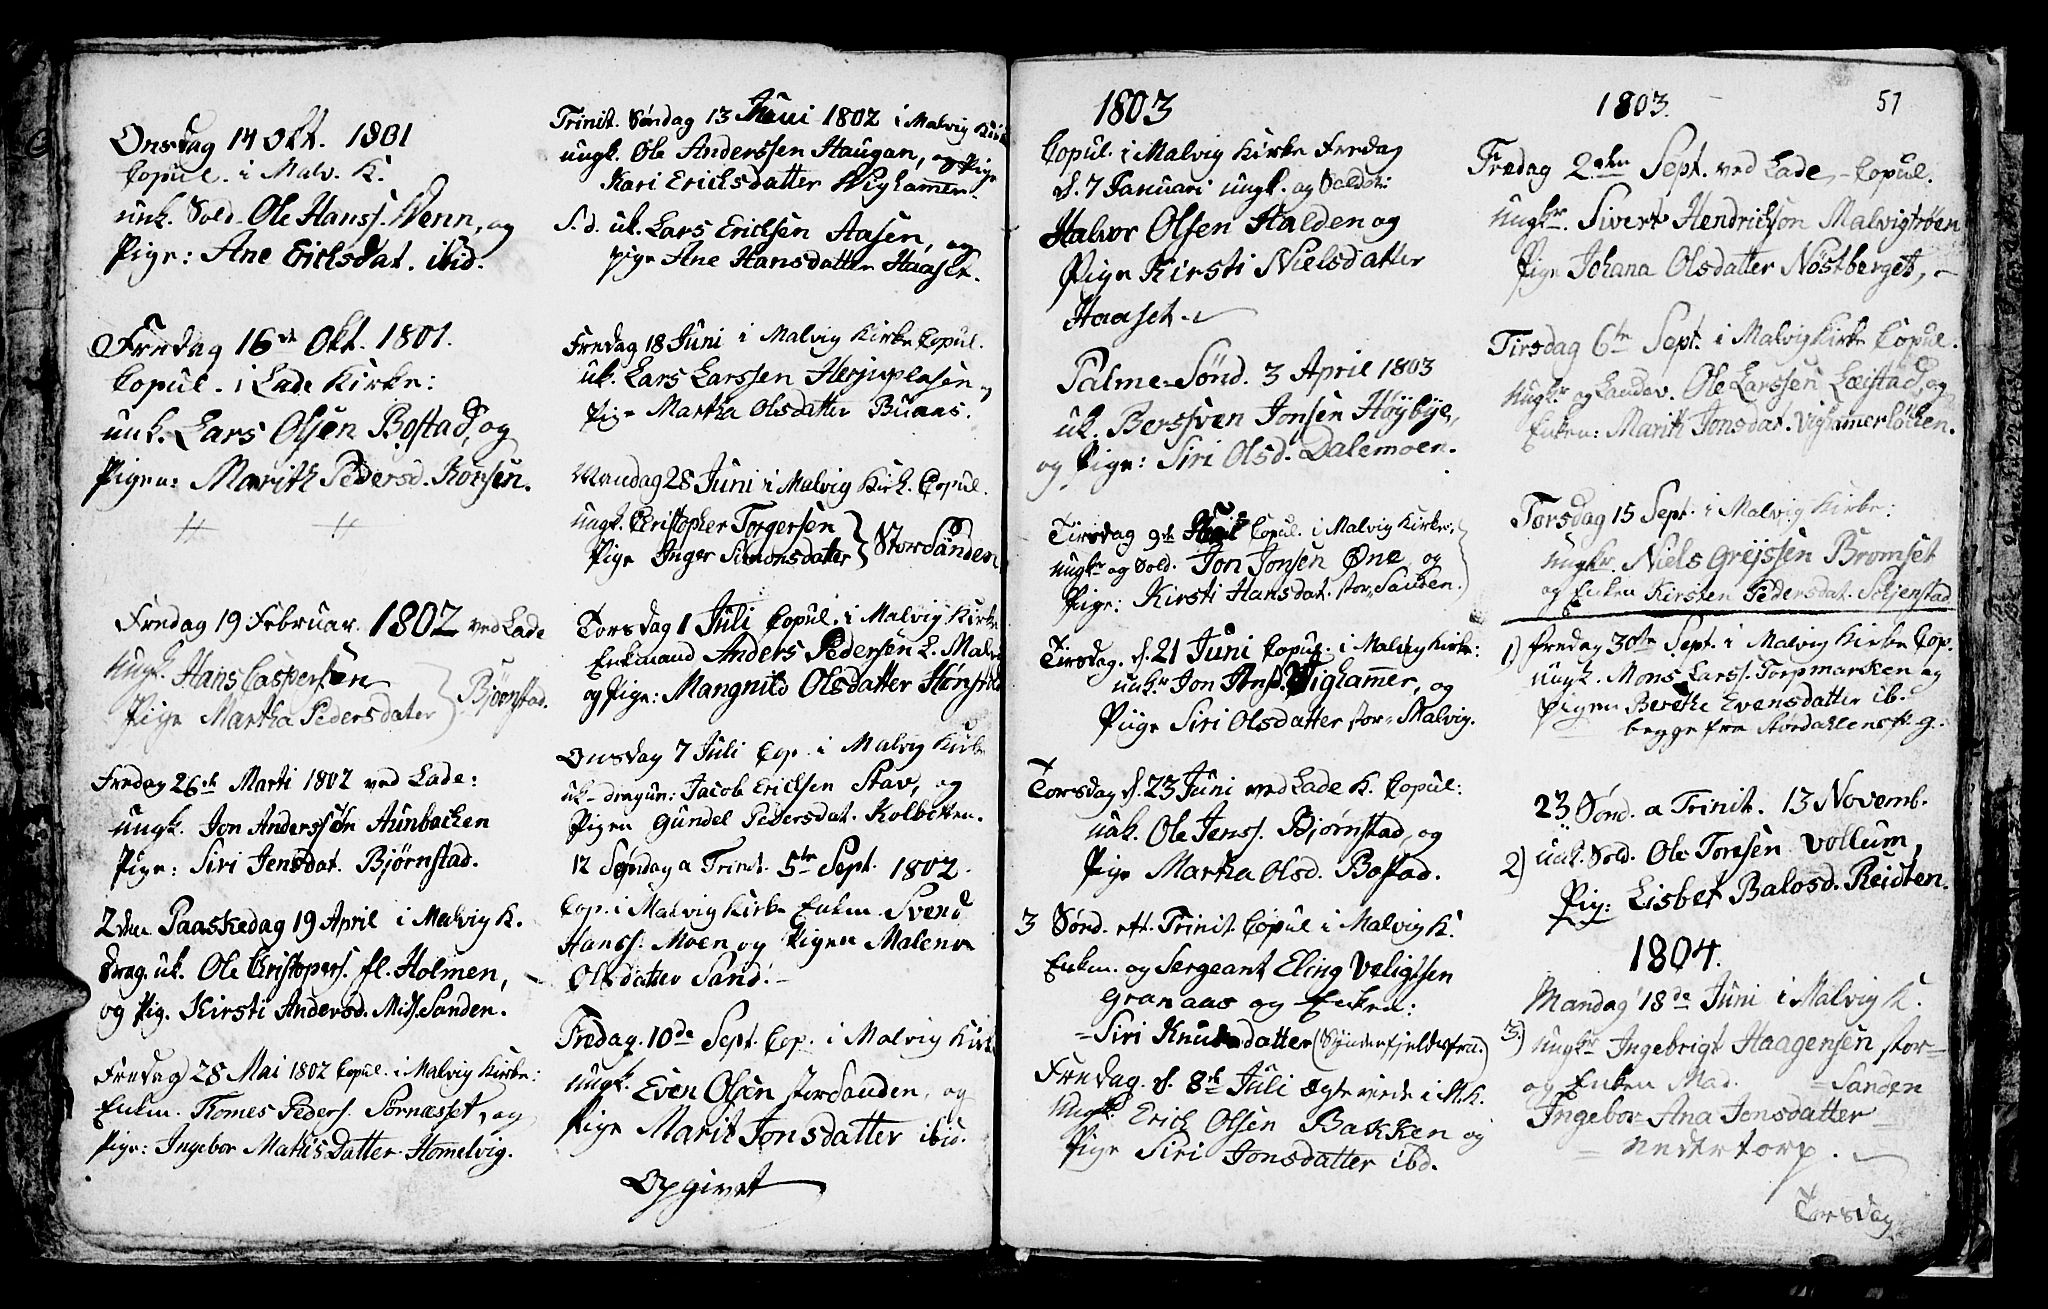 Onsdag 14 Okt. 1801
Copul. i Malv. K.
unk. Sold. Ole Hanss. Wenn, og
Pige: Ane Ericksdat. ibid.
Fredag 16de Okt. 1801.
Copul. i Lade Kirke:
unk. Lars Olsen Bostad, og
Pigen: Marith Pedersd. Konsen.
Fredag 19 Februar. 1802 ved Lade
Ungk. Hans Caspersen
Pige Martha Pedersdater } Bjørnstad.
Fredag 26de Marti 1802 ved Lade:
ungk. Jon Anderssøn Aunbacken
Pige: Siri Jensdat. Bjørnstad.
2den Paaskedag 19 April i Malvig K.
drag. uk. Ole Cristopers. fl. Holmen,
og Pig. Kirsti Andersd. Mids. Sanden.
Fredag 28 Mai 1802 Copul. i Malvig Kirke:
Enkm. Tomes Peders. Sornæsset, og
Pige: Ingebor Mattis Datter Homelvig.
Trinit. Søndag 13 Juni 1802 i Malvig Kirke
ungk. Ole Anderssen Haugan, og Pige
Kari Ericksdatter Wighammer.
S. d. uk. Lars Ericksen Aasen, og
pige Ane Hansdatter Haaset.
Fredag 18 Juni i Malvig Kirke Copul.
uk. Lars Larssen Herjuplasen og
Pige Martha Olsdatter Buaas.
Mandag 28 Juni i Malvig Kirk. Copul.
ungk. Cristopher Torgersen
Pige Inger Simonsdatter } Storsanden
Torsdag 1 Juli Copul. i Malvig Kirke
Enkmand Anders Pedersen L. Malvi
og Pige: Mangnild Olsdatter
Onsdag 7 Juli Cop. i Malvig Kirke
uk. dragun: Jacob Ericksen Stav, og
Pigen Gundel Pedersdat. Kolbecken.
12 Søndag a Trinit. 5te Sept. 1802.
Cop. i Malvig Kirke Enkm. Svend
Hanss: Moen og Pigen Malena
Olsdatter Sand.
Fredag. 10de Sept. Cop. i Malvig Kirke
Ungk. Even Olsen storsanden, og
Pige Marit Jonsdatter ibid.
Opgivet
1803
Copul. i Malvig Kirke Fredag
d. 7 Januari ungk. og Soldat:
Halvor Olsen Halden og
Pige Kirsti Nielsdatter
Haaset.
Palme-Sønd. 3 April 1803
uk. Berssven Jonsen Høybye,
og Pige: Siri Olsd. Dalemoen.
Tirsdag 9de Copul. i Malvig Kirke:
ungkr og Sold. Jon Jonsen Øne og
Pige: Kirsti Hansdat. stor-Sanden.
Tirsdag. d. 21 Juni Copul. i Malvig Kirke:
unkr Jon Wighammer, og
Piige Siri Olsdatter stor-Malvig.
Torsdag d. 23 Juni ved Lade K. Copul:
unk. Ole Jenss. Bjørnstad, og
Pige Martha Olsd. Bostad.
3 Sønd. eft. Trinit Copul i Malvig K.
Enkm. og Sergeant Eling Veligssen
Granaas og Enken:
Siri Knutsdatter (Synderfjeldsfra.)
Fredag. d. 8de Juli Ægteviede i M. K.
Ungk: Erick Olsen Bakken og
Pige Siri Jonsdatter ibd.
1803. 57
Fredag 2den Sept. ved Lade Copul.
Ungkr. Sivert Hendrickson Malvigtrøen
Pige Johana Olsdatter Nøstberget,
Tirsdag 6te Sept. i Malvig Kirke Copul.
Ungkr. og Landev. Ole Larssen Leistad, og
Enken: Marith Jonsdat. Vighamerløkken.
Torsdag 15 Sept. i Malvig Kirke:
ungkr. Niels Grejssen Bromset
og Enken Kirsten Pedersdat. Seljenstad
1) Fredag 30te Sept. i Malvig Kirke Cop.
ungk. Mons Larss. Torpmarken og
Pigen Berethe Evensdatter ib.
begge fra Størdallens g.
23 Sønd. a Trinit. 13 Novemb.
2) unk. Sold. Ole Tomsen Vollum,
Pig: Lisbet Balosd. Reidten.
1804.
Mandag 18de Juni i Malvig K.
3.) Ungkr Ingebrigt Haagensen stor-
og Enken Mad. =Sanden
Ingebor Ana Jonsdatter
nedertorp.
Torsdag